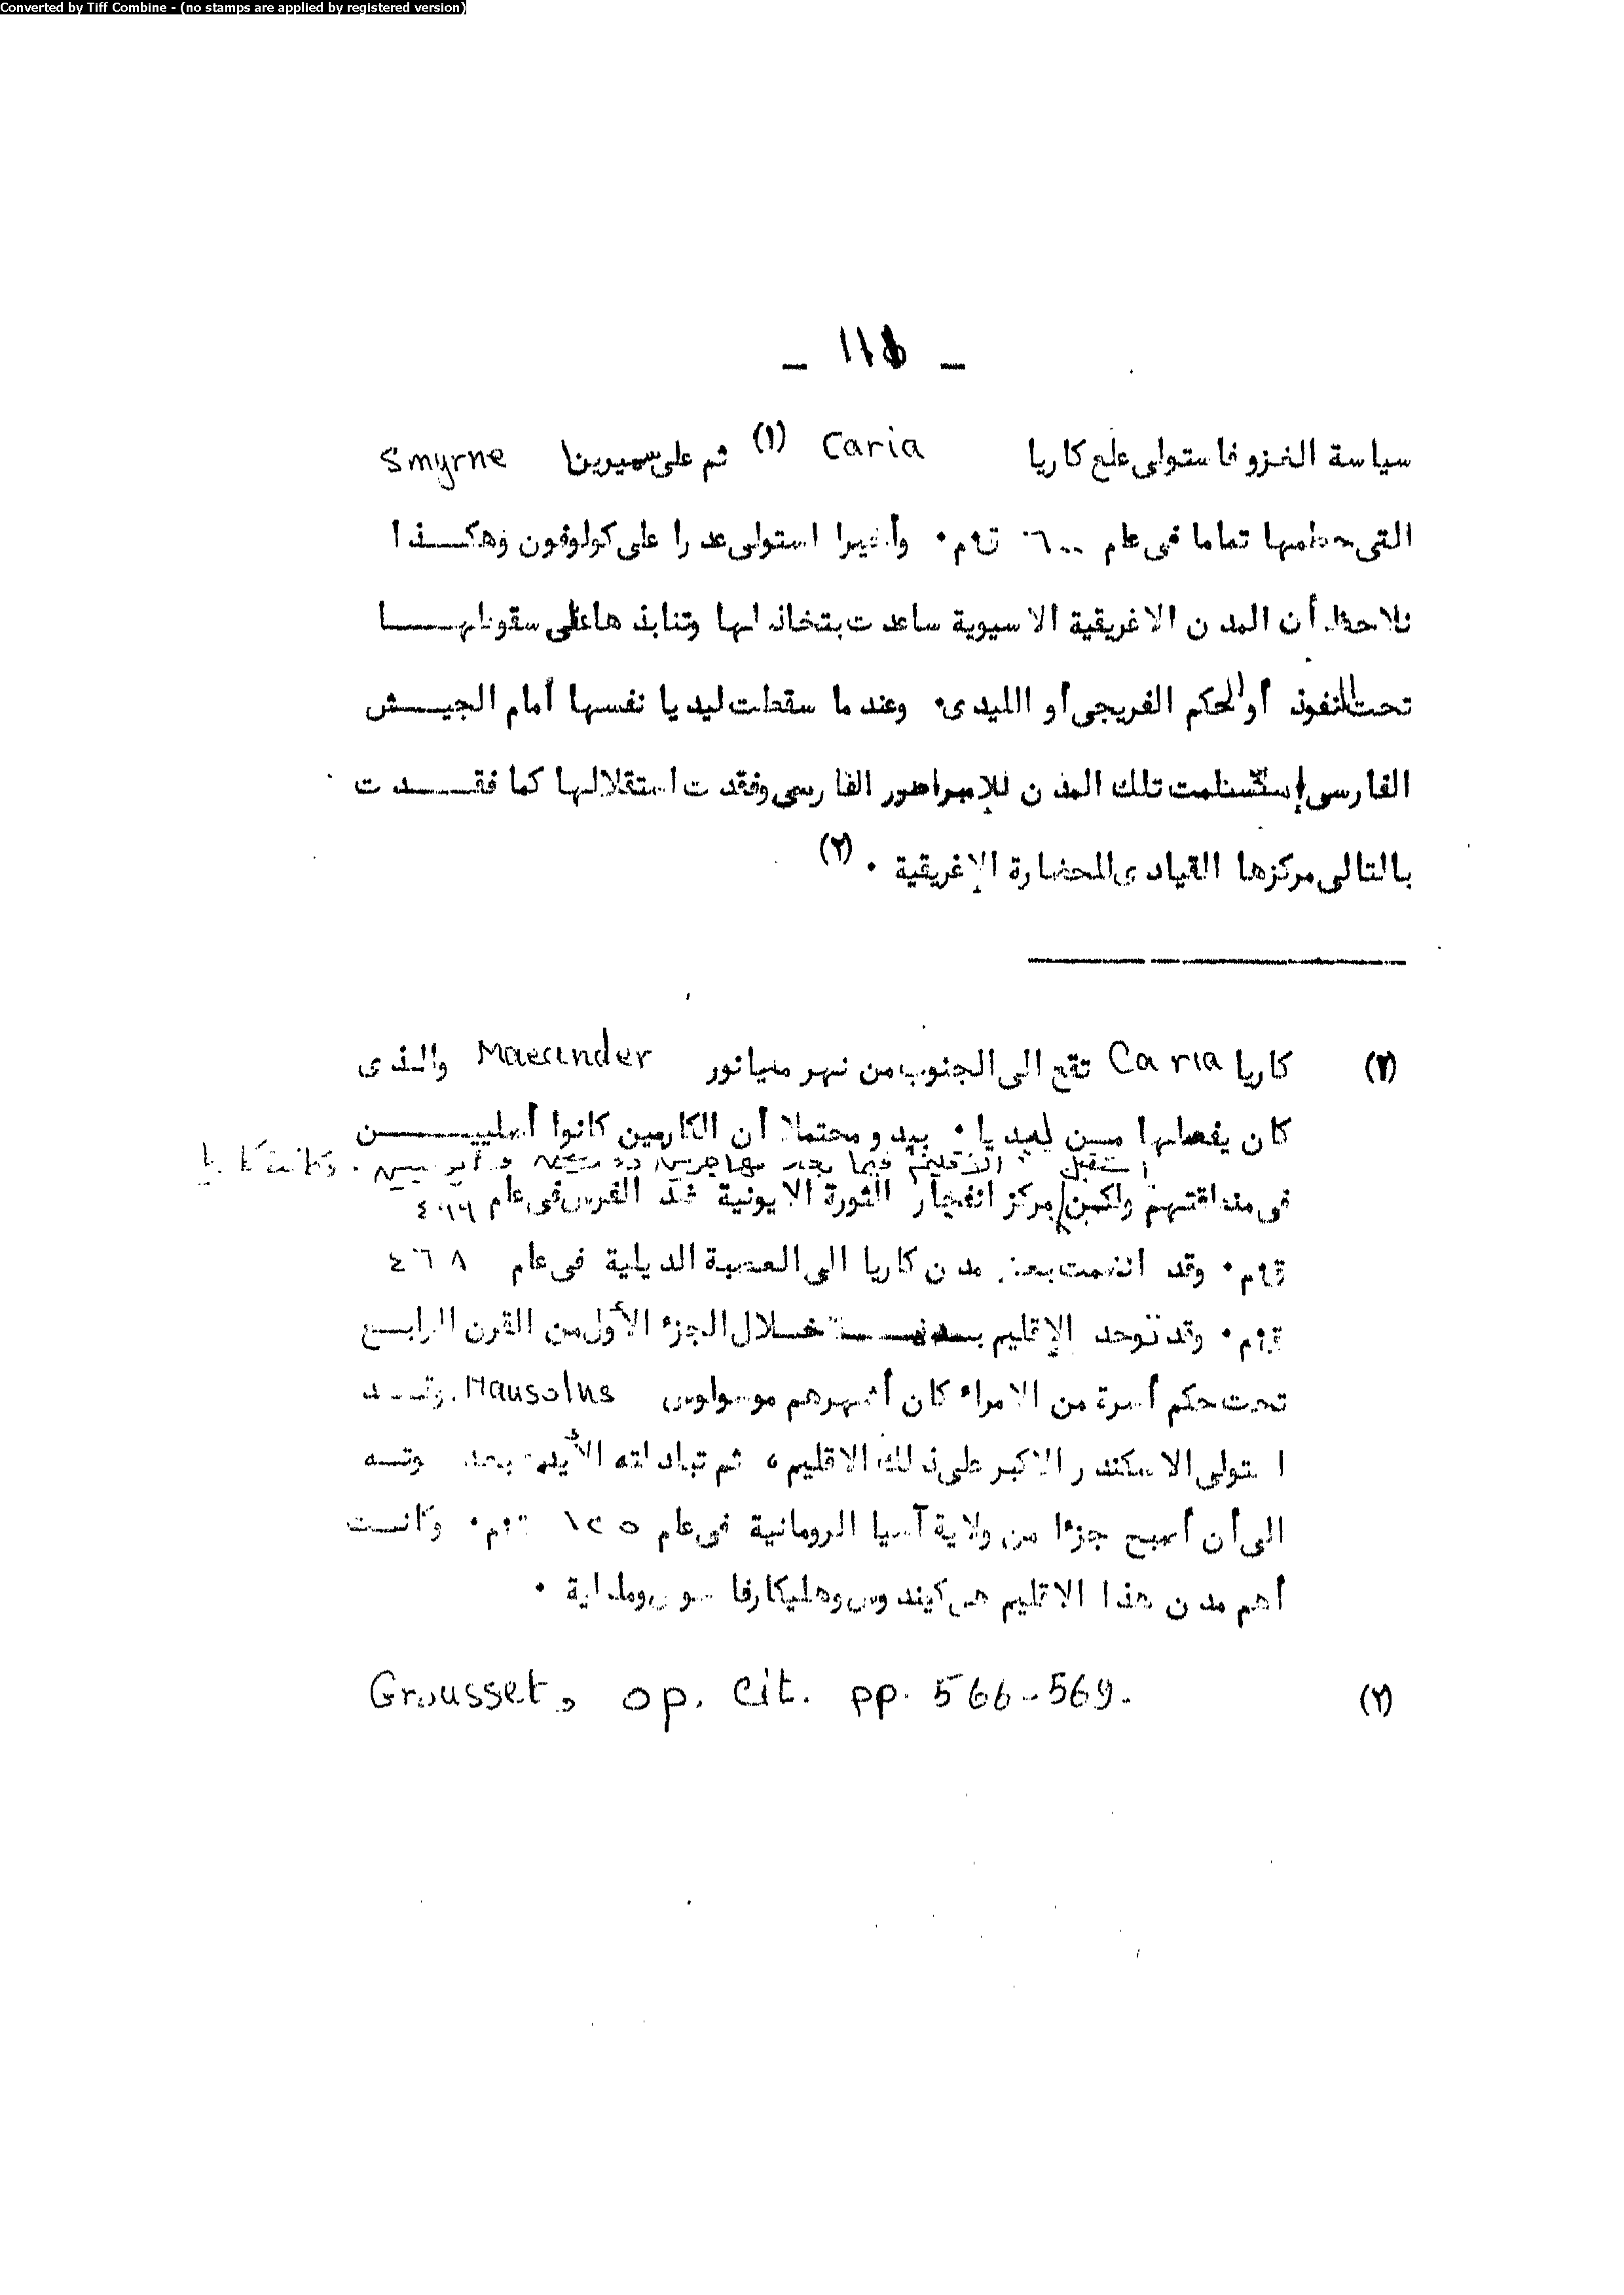 Converted by Tiff Combine - (no stamps are applied by registered version)
سياسة الغزو فاستولى على كاريا Caria (١) ثم على سميرينا Smyrne
التى حطمها تماما فى عام ٦٠٠ ق٠م٠ وأخيرا استولى عدرا على كولوفون وهكــذا
نلاحظ أن المدن الاغريقية الاسيوية ساعدت بتخاذلها وتنابذها على سقوطهــا
تحت النفوذ أو الحكم الفريجى أو الليدى٠ وعندما سقطت ليديا نفسها أمام الجيــش
الفارسى إستسلمت تلك المدن للإمبراطور الفارسى وفقدت استقلالها كما فقــدت
بالتالى مركزها القيادى للحضارة الإغريقية ٠ (٢)
كاريا Caria تقع الى الجنوب من نهر ميانور Maeander والـذى
كان يفصلها مــن ليديا ٠ يبدو محتملا أن الكاريين كانوا أصلييــن
استقبل الاقليم فيما بعد مهاجرين دوريين و أيونيين ٠ وكانت كاريا
فى منطقتهم ولكن مركز انفجار الثورة الايونية ضد الفرس فى عام ٤٩٩
ق٠م٠ وقد انضمت بعض مدن كاريا الى العصبة الديلية فى عام ٤٦٨
ق٠م٠ وقد توحد الإقليم خــلال الجزء الأول من القرن الرابــع
تحت حكم أسرة من الامراء كان أشهرهم موسولوس Mausolus. وقــد
استولى الاسكندر الاكبر على ذلك الاقليم ، ثم تبادلته الأيدى بعد موتــه
الى أن أصبح جزءا من ولاية آسيا الرومانية فى عام ١٢٥ ق٠م٠ وكانــت
أهم مدن هذا الاقليم هى كيندوس وهليكارناسوس وملداية ٠
(٢) Grousset, op. cit. pp. 566-569.